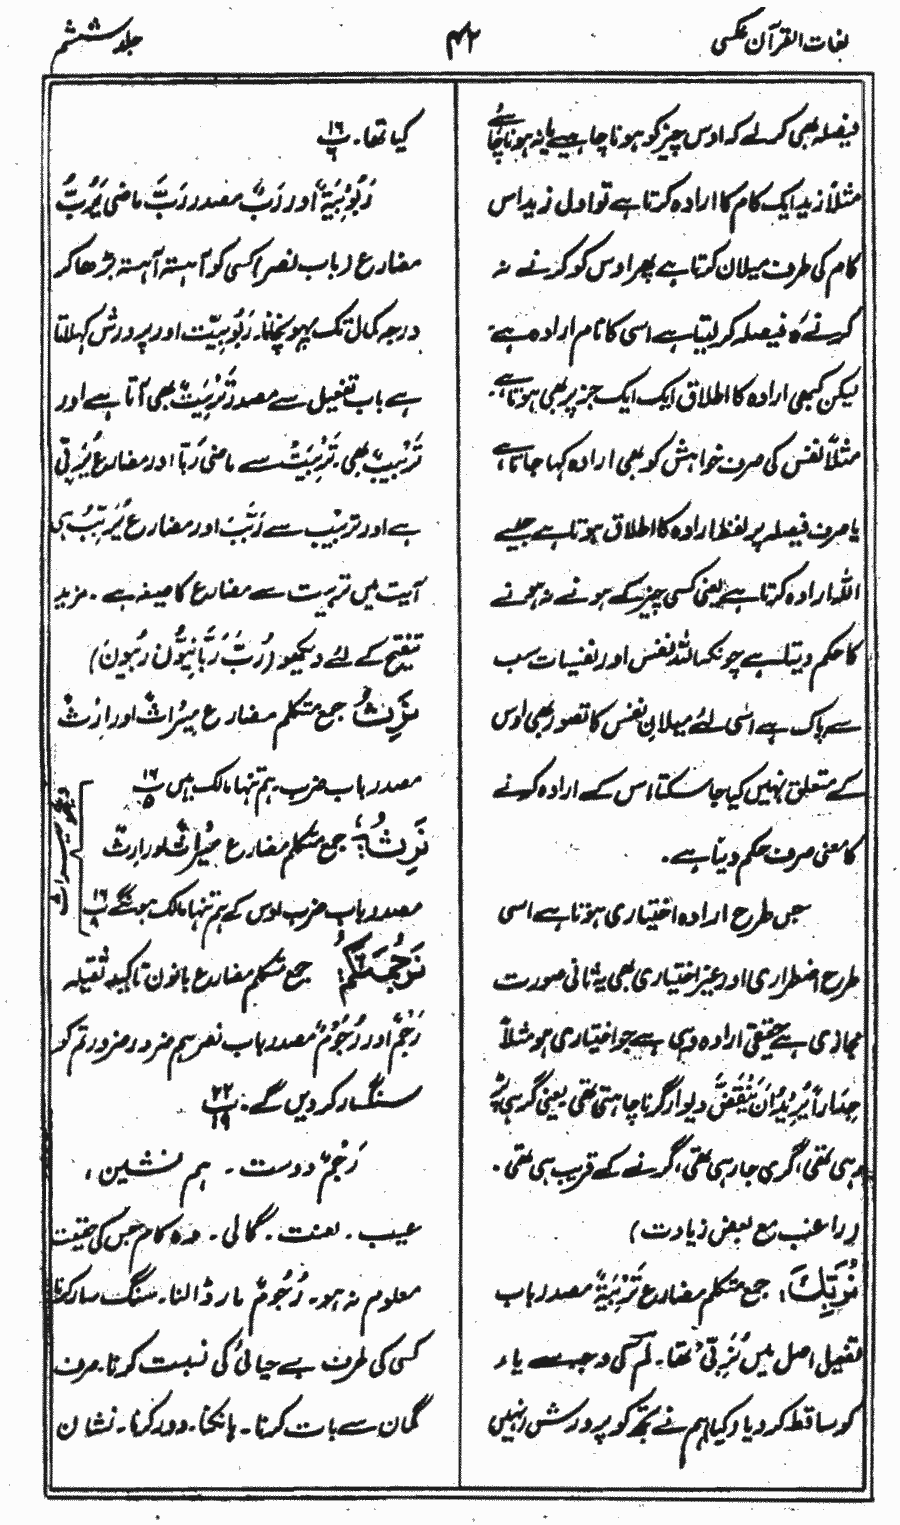 لغات القرآن عکسی
۴۲
جلد ششم
فیصلہ بھی کرلے کہ اوس چیز کو ہونا چاہیے یا نہ ہونا چاہئے
مثلاً زید ایک کام کا ارادہ کرتا ہے تو اول زید اس
کام کی طرف میلان کرتا ہے پھر اوس کو کرنے نہ
کرنے کا فیصلہ کر لیتا ہے اسی کا نام ارادہ ہے
لیکن کبھی ارادہ کا اطلاق ایک ایک جز پر بھی ہوتا ہے
مثلاً نفس کی صرف خواہش کو بھی ارادہ کہا جاتا ہے
یا صرف فیصلہ پر لفظ ارادہ کا اطلاق ہوتا ہے جیسے
اللہ ارادہ کرتا ہے یعنی کسی چیز کے ہونے نہ ہونے
کا حکم دیتا ہے چونکہ اللہ نفس اور نفسیات سب
سے پاک ہے اسی لئے میلان نفس کا تصور بھی اوس
کے متعلق نہیں کیا جا سکتا اس کے ارادہ کرنے
کا معنی صرف حکم دینا ہے۔
جس طرح ارادہ اختیاری ہوتا ہے اسی
طرح اضطراری اور غیر اختیاری بھی یہ ثانی صورت
مجازی ہے حقیقی ارادہ وہی ہے جو اختیاری ہو مثلاً
جِدَاراً یُّرِیْدُ اَنْ یَّنْقَضَّ دیوار گرنا چاہتی تھی یعنی گرسی پڑ
رہی تھی، گری جا رہی تھی، گرنے کے قریب ہی تھی۔
(راغب مع بعض زیادت)
نُرَبِّكَ: جمع متکلم مضارع تَرْبِیَةٌ مصدر باب
تفعیل اصل میں نُرَبِّیْ تھا۔ لم کی وجہ سے یاء
کو ساقط کر دیا (کیا ہم نے تجھ کو پرورش نہیں
کیا تھا۔ پ ۱۹
رَبُوْبِیَةٌ اور رَبٌّ مصدر رَبَّ ماضی یَرُبُّ
مضارع (باب نصر) کسی کو آہستہ آہستہ بڑھا کر
درجہ کمال تک پہونچانا۔ رَبُوْبِیّت اور پرورش کہلاتا
ہے باب تفعیل سے مصدر تَرْبِیَتٌ بھی آتا ہے اور
تَرْبِیبٌ بھی۔ تَرْبِیَتٌ سے ماضی رَبّٰا اور مضارع یُرَبِّی
ہے اور ترتیب سے رَبَّبَ اور مضارع یُرَبِّبُ ہی
آیت میں تربیت سے مضارع کا صیغہ ہے۔ مزید
تنقیح کے لئے دیکھو (رَبَّ، رَبَّانِیُّوْنَ رِبِّیُّونَ)
نَرِثُ: جمع متکلم مضارع مِیْرَاثٌ اور اِرْثٌ
مصدر باب ضرب۔ ہم تنہا مالک ہیں پ ۱۶
نَرِثُهٗ: جمع متکلم مضارع مِیْرَاثٌ اور اِرْثٌ
مصدر باب ضرب اوس کے ہم تنہا مالک ہونگے پ ۱۶
نَرْجُمَنَّكُمْ: جمع متکلم مضارع بانون تاکید ثقیلہ
رَجْمٌ اور رُجُوْمٌ مصدر باب نصر ہم ضرور ضرور تم کو
سنگسار کر دیں گے۔
رَجْمٌ دوست۔ ہم نشین،
عیب۔ لعنت۔ گالی۔ وہ کام جس کی حقیقت
معلوم نہ ہو۔ رُجُوْمٌ مار ڈالنا۔ سنگ سار کرنا
کسی کی طرف بے حیائی کی نسبت کرنا۔ صرف
گمان سے بات کرنا۔ ہانکنا۔ دور کرنا۔ نشان